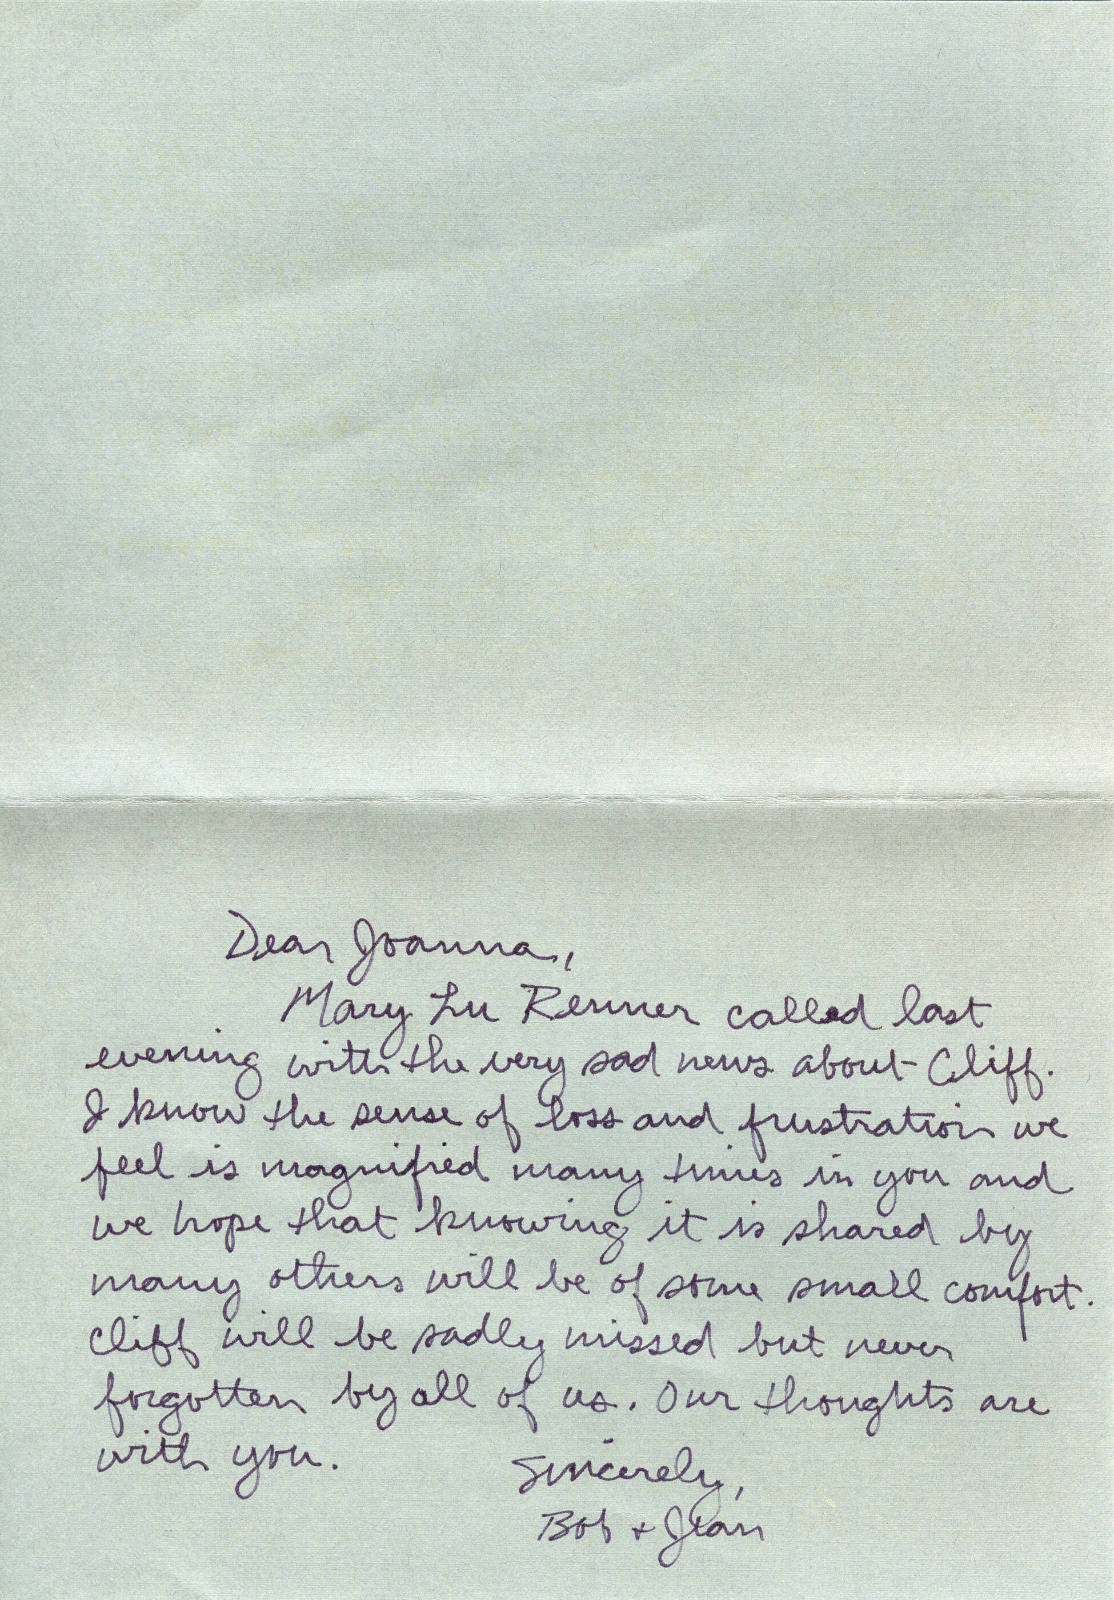 Dear Joanna,
Mary Lu Renner called last
evening with the very sad news about Cliff.
I know the sense of loss and frustration we
feel is magnified many times in you and
we hope that knowing it is shared by
many others will be of some small comfort.
Cliff will be sadly missed but never
forgotten by all of us. Our thoughts are
with you.
Sincerely,
Bob + Jean